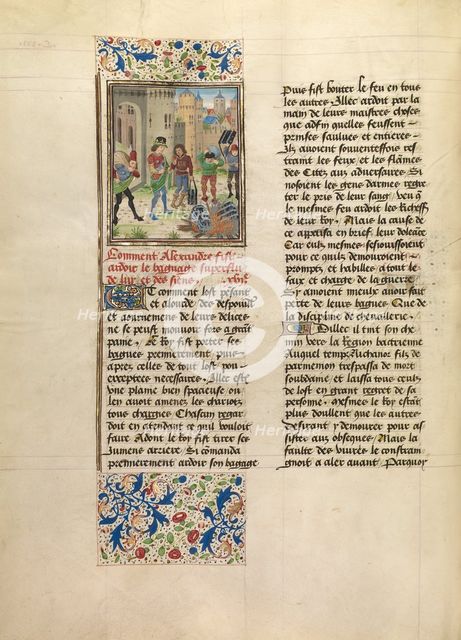 Comment Alexandre fist
ardoir le bagnage superflu
de luy et des siens
Et comment lost pesant
et aloudé des despouilles
et aournemens de leurs delices
ne se peust mouuoir fors a grāt
paine. Le Roy fist porter ses
bagues premierement, puis
apres celles de tout lost, pou
exceptees necessaires. Illec est
vne plaine bien spacieuse ou
len auoit amene les chariotz
tous chargies. Chascun regar
doit en attendant ce quil vouloit
faire. Adont le Roy fist tirer ses
Jumens arriere. Si cōmanda
premierement ardoir son bagage
Puis fist bouter le feu en tous
les autres. Illec ardoit par la
main de leurs maistres choses
que adfin quelles feussent
prinses sauluees et entieres
Ilz auoient souuenteffois res
traint les feux et les flames
des Citez aux aduersaires. Si
nosoient les gens darmes regre
ter le pris de leur sang, veu que
le mesmes feu ardoit les richesses
de leur Roy. Mais la cause de
ce appaisa en brief leur doleance
Car eulx mesmes sesiouissoient
pour ce quilz demouroient
promptz et habilles a tout le
faix et charge de la guerre
Si amoient mieulx auoir fait
perte de leurs bagues Que de
la discipline de cheuallerie.
Dillec il tint son che
min vers la Region bactrienne
Auquel temps Nichanor filz de
parmenon trespassa de mort
soubdaine et laissa tous ceulx
de lost en grant regret de sa
personne. Mesmes le Roy estāt
plus doullent que les autres
desirant y demourer pour as
sister aux obseques. Mais la
faulte des viures le constraing
gnoit a aler auant. Parquoy
Heritage
Heritage
Heritage
Heritage